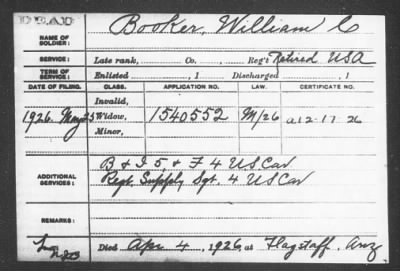 DEAD
NAME OF SOLDIER: Booker, William C
SERVICE: Late rank, Co. Reg't Retired USA
TERM OF SERVICE: Enlisted , 1 Discharged , 1
DATE OF FILING. CLASS. APPLICATION NO. LAW. CERTIFICATE NO.
Invalid,
1926. May 25 Widow, 1540552 M/26 a12-17-26
Minor,
ADDITIONAL SERVICES: B & I 5 & F 4 US Cav
Regt. Supply Sgt. 4 US Cav
REMARKS:
Died Apr 4, 1926, at Flagstaff, Ariz